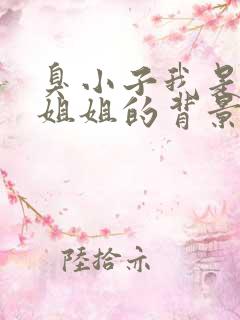 臭小子我是
姐姐的背景
陸拾示